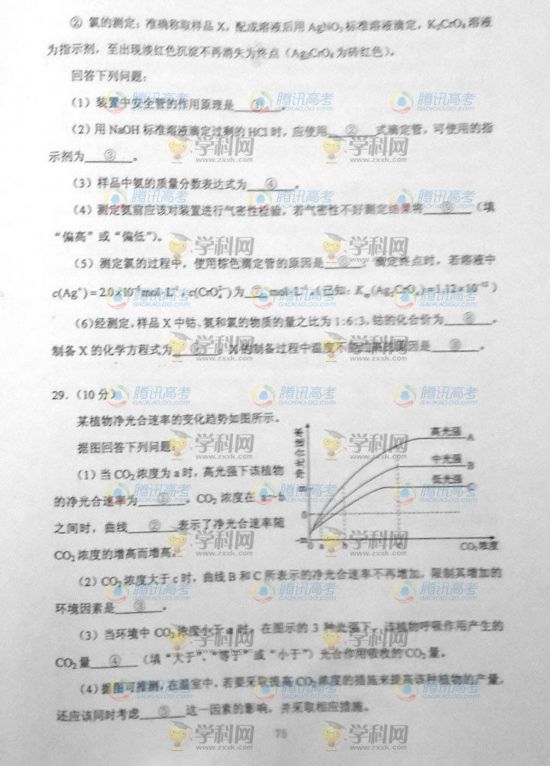 ② 氯的测定：准确称取样品 X，配成溶液后用 AgNO₃ 标准溶液滴定，K₂CrO₄ 溶液
为指示剂，至出现淡红色沉淀不再消失为终点（Ag₂CrO₄ 为砖红色）。
回答下列问题：
（1）装置中安全管的作用原理是 ① 。
（2）用 NaOH 标准溶液滴定过剩的 HCl 时，应使用 ② 式滴定管，可使用的指
示剂为 ③ 。
（3）样品中氨的质量分数表达式为 ④ 。
（4）测定氨前应该对装置进行气密性检验，若气密性不好测定结果将 ⑤ （填
“偏高”或“偏低”）。
（5）测定氯的过程中，使用棕色滴定管的原因是 ⑥ ；滴定终点时，若溶液中
c(Ag⁺)=2.0×10⁻⁵mol·L⁻¹，c(CrO₄²⁻) 为 ⑦ mol·L⁻¹。（已知：Ksp(Ag₂CrO₄)=1.12×10⁻¹²）
（6）经测定，样品 X 中钴、氨和氯的物质的量之比为 1:6:3，钴的化合价为
制备 X 的化学方程式为 ；X 的制备过程中温度不能过高的原因是 。
29．（10 分）
某植物净光合速率的变化趋势如图所示。
据图回答下列问题：
（1）当 CO₂ 浓度为 a 时，高光强下该植物
的净光合速率为 ① 。CO₂ 浓度在 a～b
之间时，曲线 ② 表示了净光合速率随
CO₂ 浓度的增高而增高。
净光合速率
高光强 A
中光强 B
低光强 C
0 a b c CO₂浓度
（2）CO₂ 浓度大于 c 时，曲线 B 和 C 所表示的净光合速率不再增加，限制其增加的
环境因素是 ③ 。
（3）当环境中 CO₂ 浓度小于 a 时，在图示的 3 种光强下，该植物呼吸作用产生的
CO₂ 量 ④ （填“大于”、“等于”或“小于”）光合作用吸收的 CO₂ 量。
（4）据图可推测，在温室中，若要采取提高 CO₂ 浓度的措施来提高该种植物的产量，
还应该同时考虑 ⑤ 这一因素的影响，并采取相应措施。
76
腾讯高考
GAOKAO.QQ.COM
学科网
www.zxxk.com